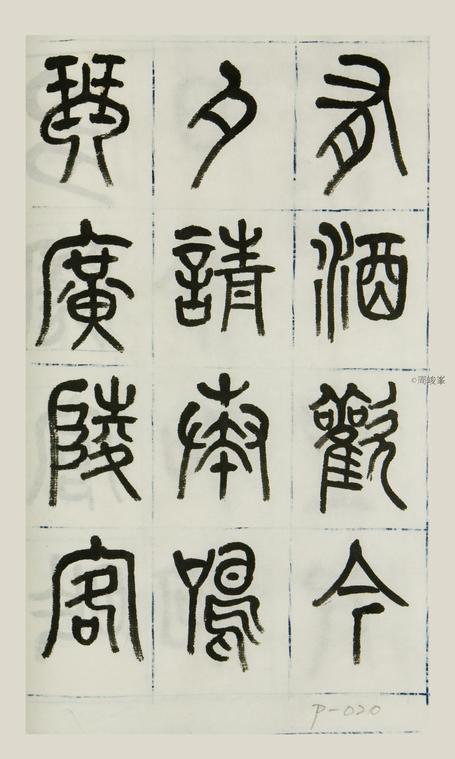 有酒歡今
夕請奏鳴
琴廣陵客
©周峻峯
P-020